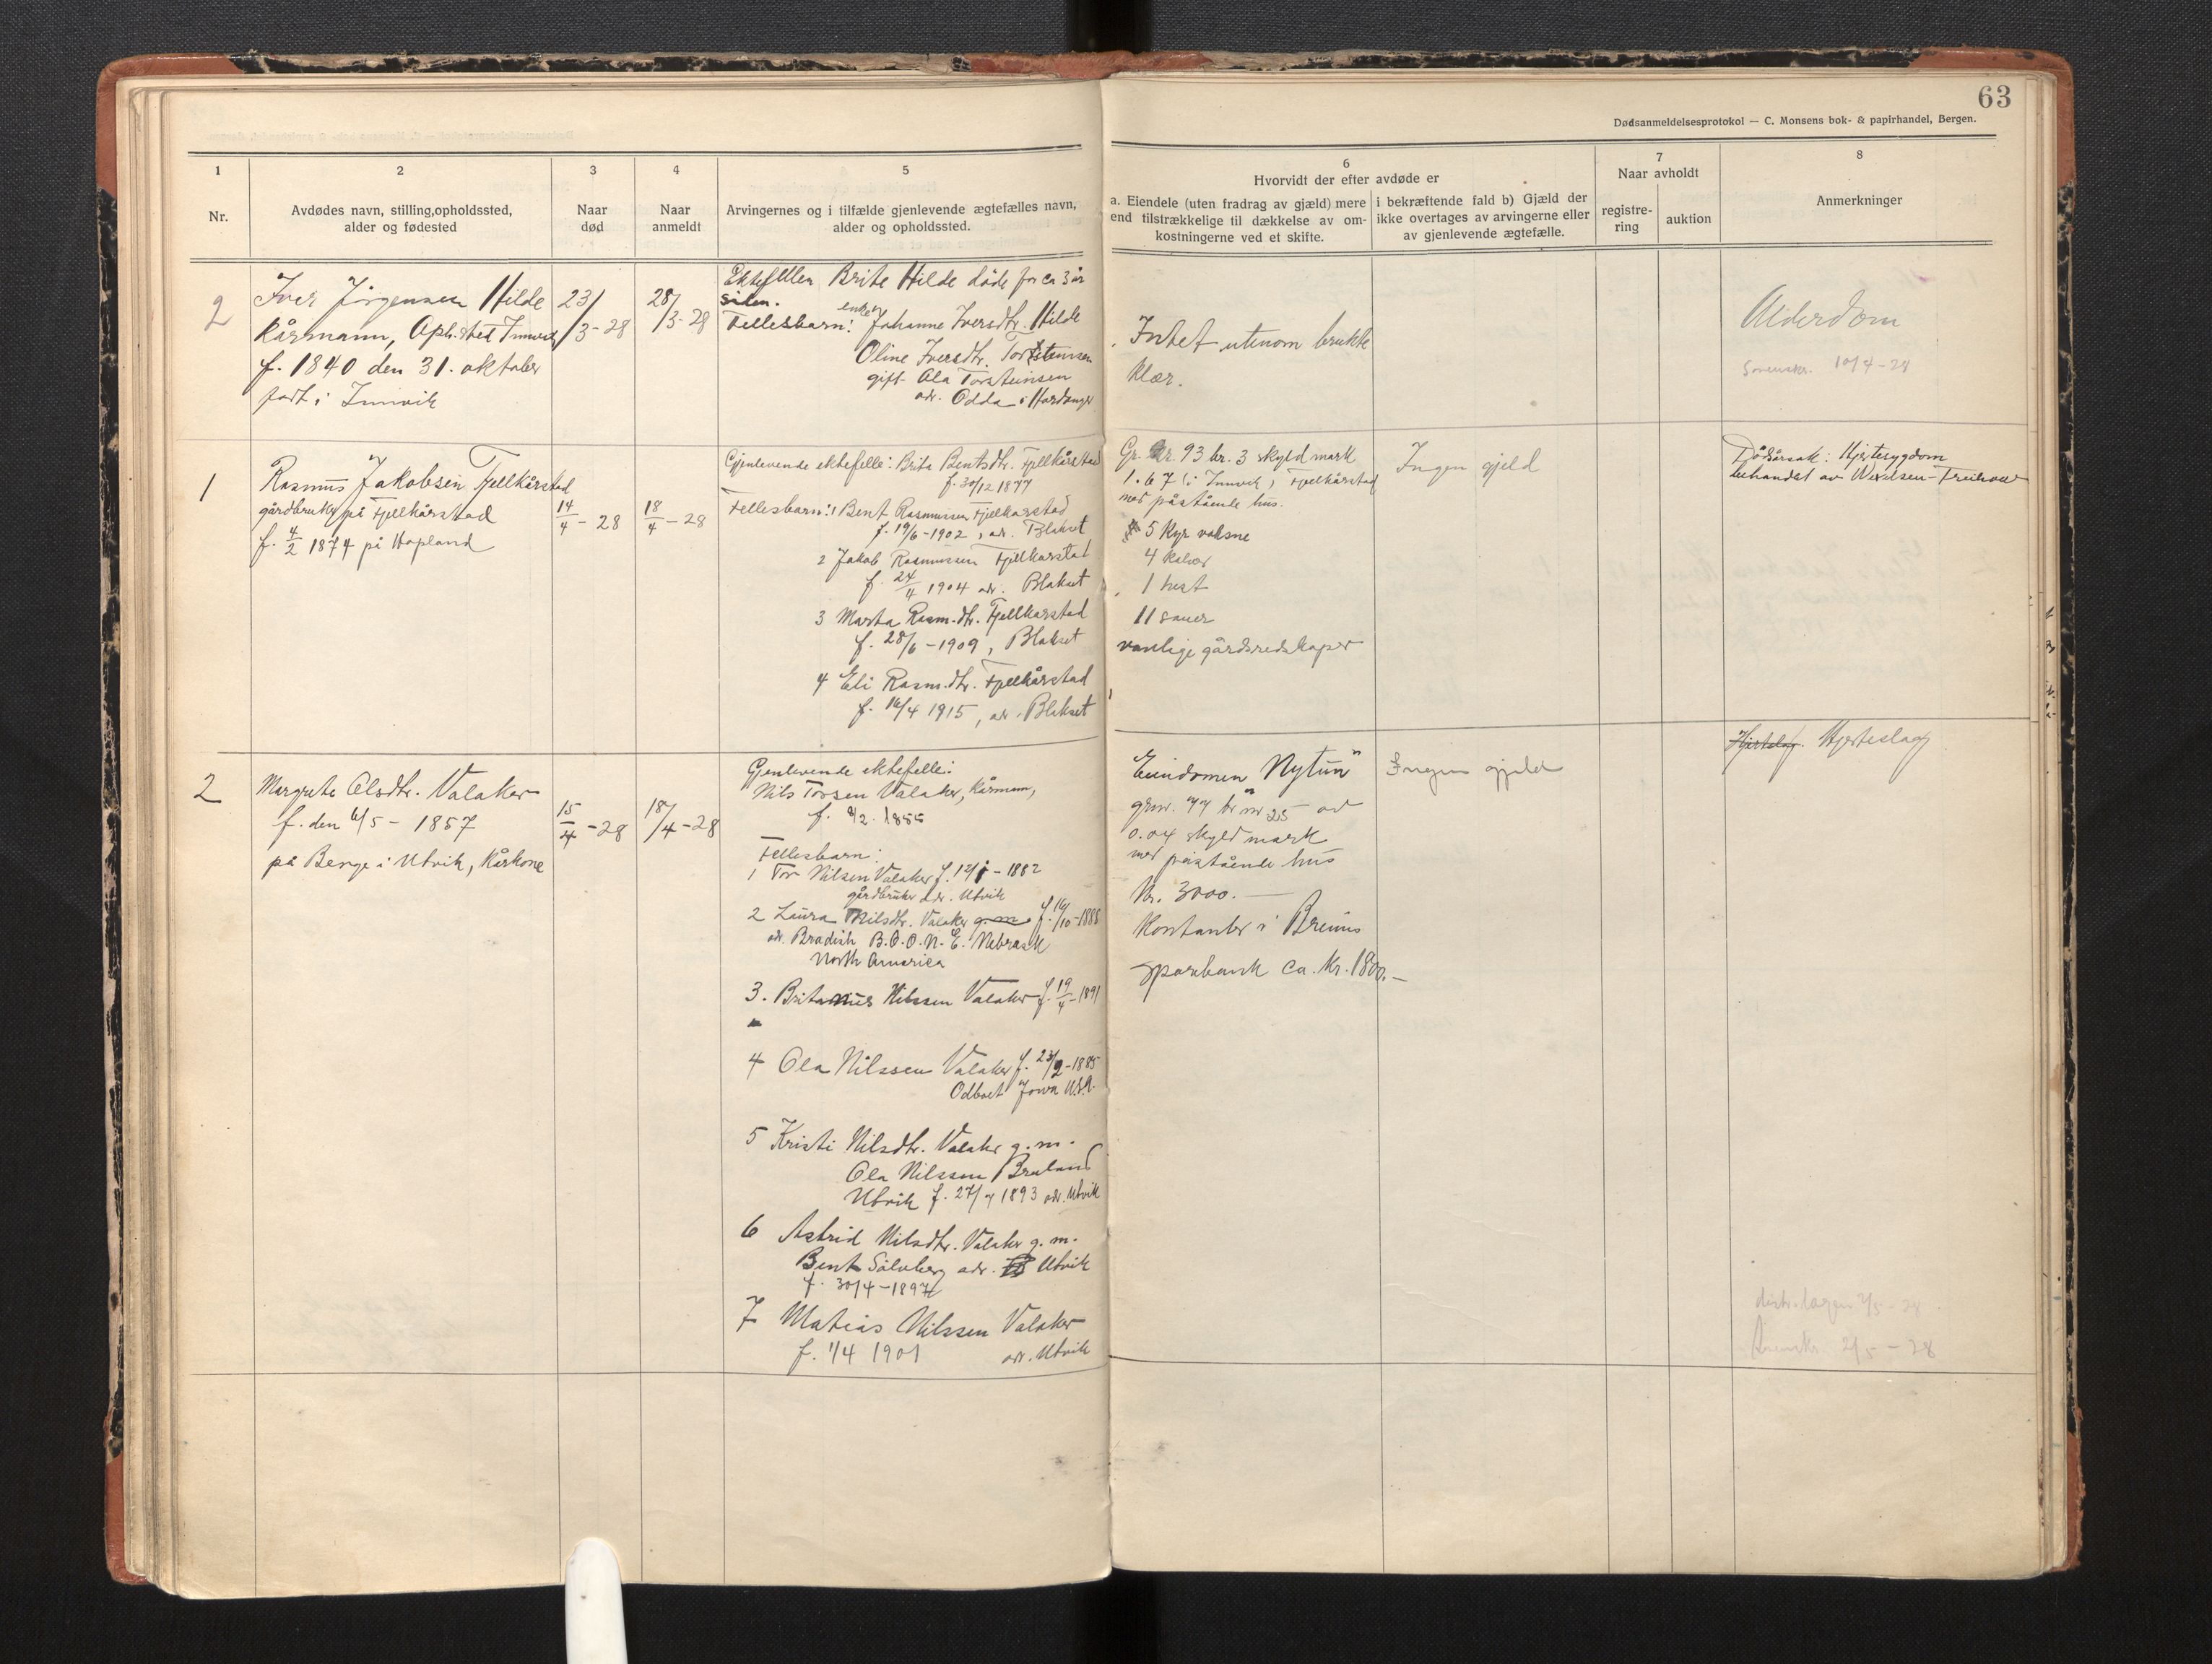 63
Dødsanmeldelsesprotokol — C. Monsens bok- & papirhandel, Bergen.
1
Nr.
2
Avdødes navn, stilling, opholdssted,
alder og fødested
3
Naar
død
4
Naar
anmeldt
5
Arvingernes og i tilfælde gjenlevende ægtefælles navn,
alder og opholdssted.
6
Hvorvidt der efter avdøde er
a. Eiendele (uten fradrag av gjæld) mere
end tilstrækkelige til dækkelse av om-
kostningerne ved et skifte.
i bekræftende fald b) Gjæld der
ikke overtages av arvingerne eller
av gjenlevende ægtefælle.
7
Naar avholdt
registre-
ring
auktion
8
Anmerkninger
2
Iver Jørgensen Hilde
kårmann, Oph.sted Innvik
f. 1840 den 31. oktober
født i Innvik
23/3-28
28/3-28
Ektefellen Brite Hilde døde for ca 3 år
siden.
Fellesbarn: enken Johanne Iversdtr. Hilde
Oline Iversdtr. Torsteinsen
gift Ola Torsteinsen
adr. Odda i Hardanger
Intet utenom brukte
klær.
Alderdom
Sorenskr. 10/4-28
1
Rasmus Jakobsen Fjellkårstad
gårdbruker på Fjellkårstad
f. 4/2 1874 på Hopland
14/4-28
18/4-28
Gjenlevende ektefelle: Brita Bentsdtr. Fjellkårstad
f. 30/12 1877
Fellesbarn: 1 Bent Rasmussen Fjellkårstad
f. 19/6-1902, adr. Blakset
2 Jakob Rasmussen Fjellkarstad
f. 24/4 1904 adr. Blakset
3 Marta Rasm.dtr. Fjellkarstad
f. 28/6-1909, Blakset
4 Eli Rasm.dtr. Fjellkårstad
f. 16/4 1915, adr. Blakset
Gr. nr. 93 br. 3 skyld mark
1.67 i Innvik, Fjellkårstad
med påstående hus.
5 Kyr voksne
4 kalver
1 hest
11 sauer
vanlige gårdsredskaper
Ingen gjeld
Dødsårsak: Hjertesygdom
behandlet av
2
Margrete Olsdtr. Valaker
f. den 6/5 - 1857
på Berge i Utvik, Kårkone
15/4-28
18/4-28
Gjenlevende ektefelle:
Nils Torsen Valaker, Kårmann,
Fellesbarn:
1 Tor Nilsen Valaker f. 12/1-1882
gårdbruker adr. Utvik
2 Laura Nilsdtr. Valaker g.m. f. 16/10-1888
adr. Bradish B.O.O.N.E. Nebrask
North America
3. Britanus Nilssen Valaker f. 19/4-1891
4 Ola Nilssen Valaker f. 23/2-1885
Odbolt Jowa U.S.A.
5 Kristi Nilsdtr. Valaker g.m.
Ola Nilssen Bruland
Utvik f. 27/7 1893 adr. Utvik
6 Astrid Nilsdtr. Valaker g.m.
Bent Solvberg adr. Utvik
f. 30/4-1897
7 Matias Nilssen Valaker
f. 1/4 1901 adr. Utvik
Eiendomen "Nytun"
grnr. 77 br nr 25 av
0.04 skyld mark
med påstående hus
Kr. 3000.—
Kontanter i Breims
sparebank ca. Kr. 1800.—
Ingen gjeld
Hjerteslag. Hjerteslag
distr.lægen 2/5-28
Sorenskr. 2/5-28